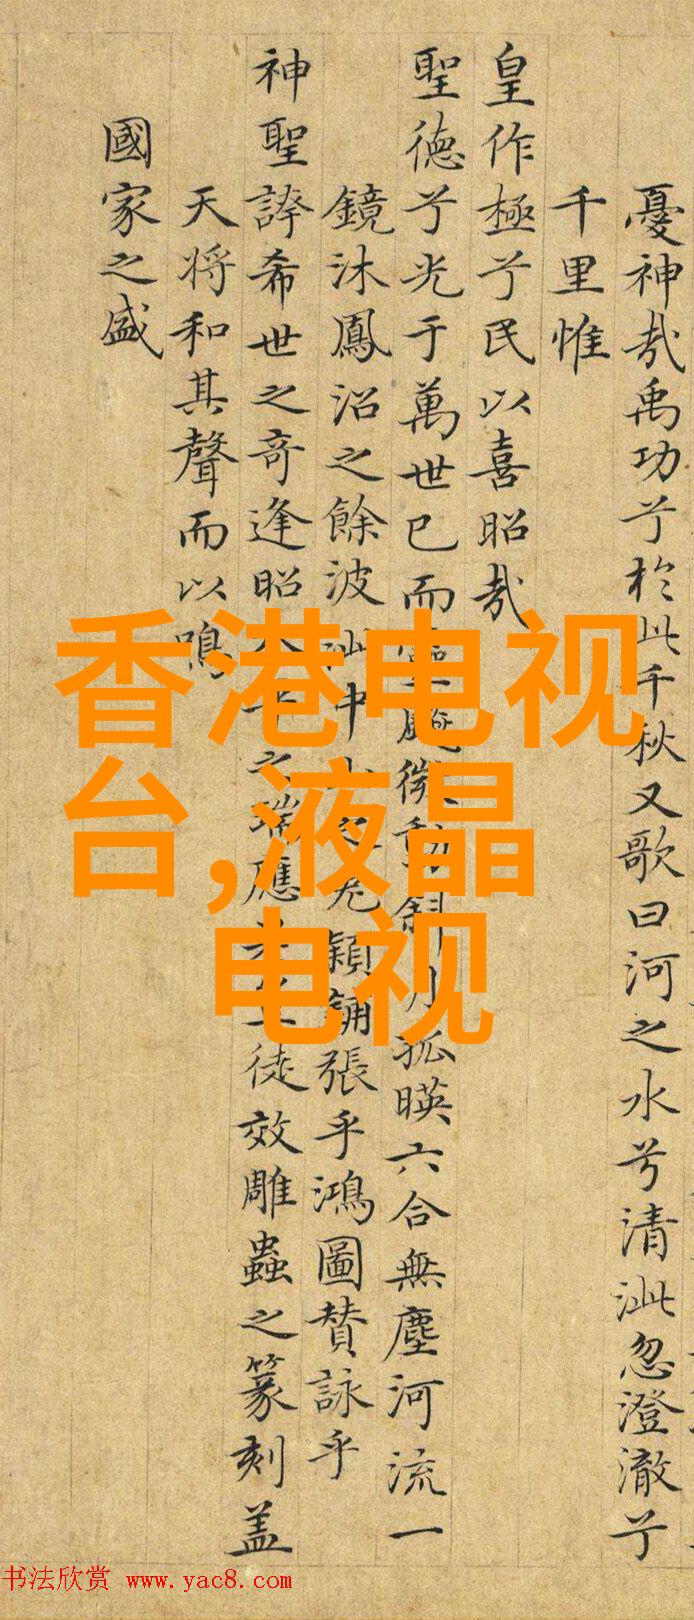 憂神㢤禹功兮於此千秋又歌曰河之水兮清泚忽澄澈兮
千里惟
皇作極兮民以喜昭㢤
聖德兮光于萬世已而靈飈微動斜月孤暎六合無塵河流一
鏡沐鳳沼之餘波 中 之 兔穎 張乎鴻圖贊詠乎
神聖誇希世之奇逢昭 平之瑞應 徒效雕蟲之篆刻盖
天将和其聲而以鳴
國家之盛
香港电视
台,液晶
电视
书法欣赏 www.yac8.com